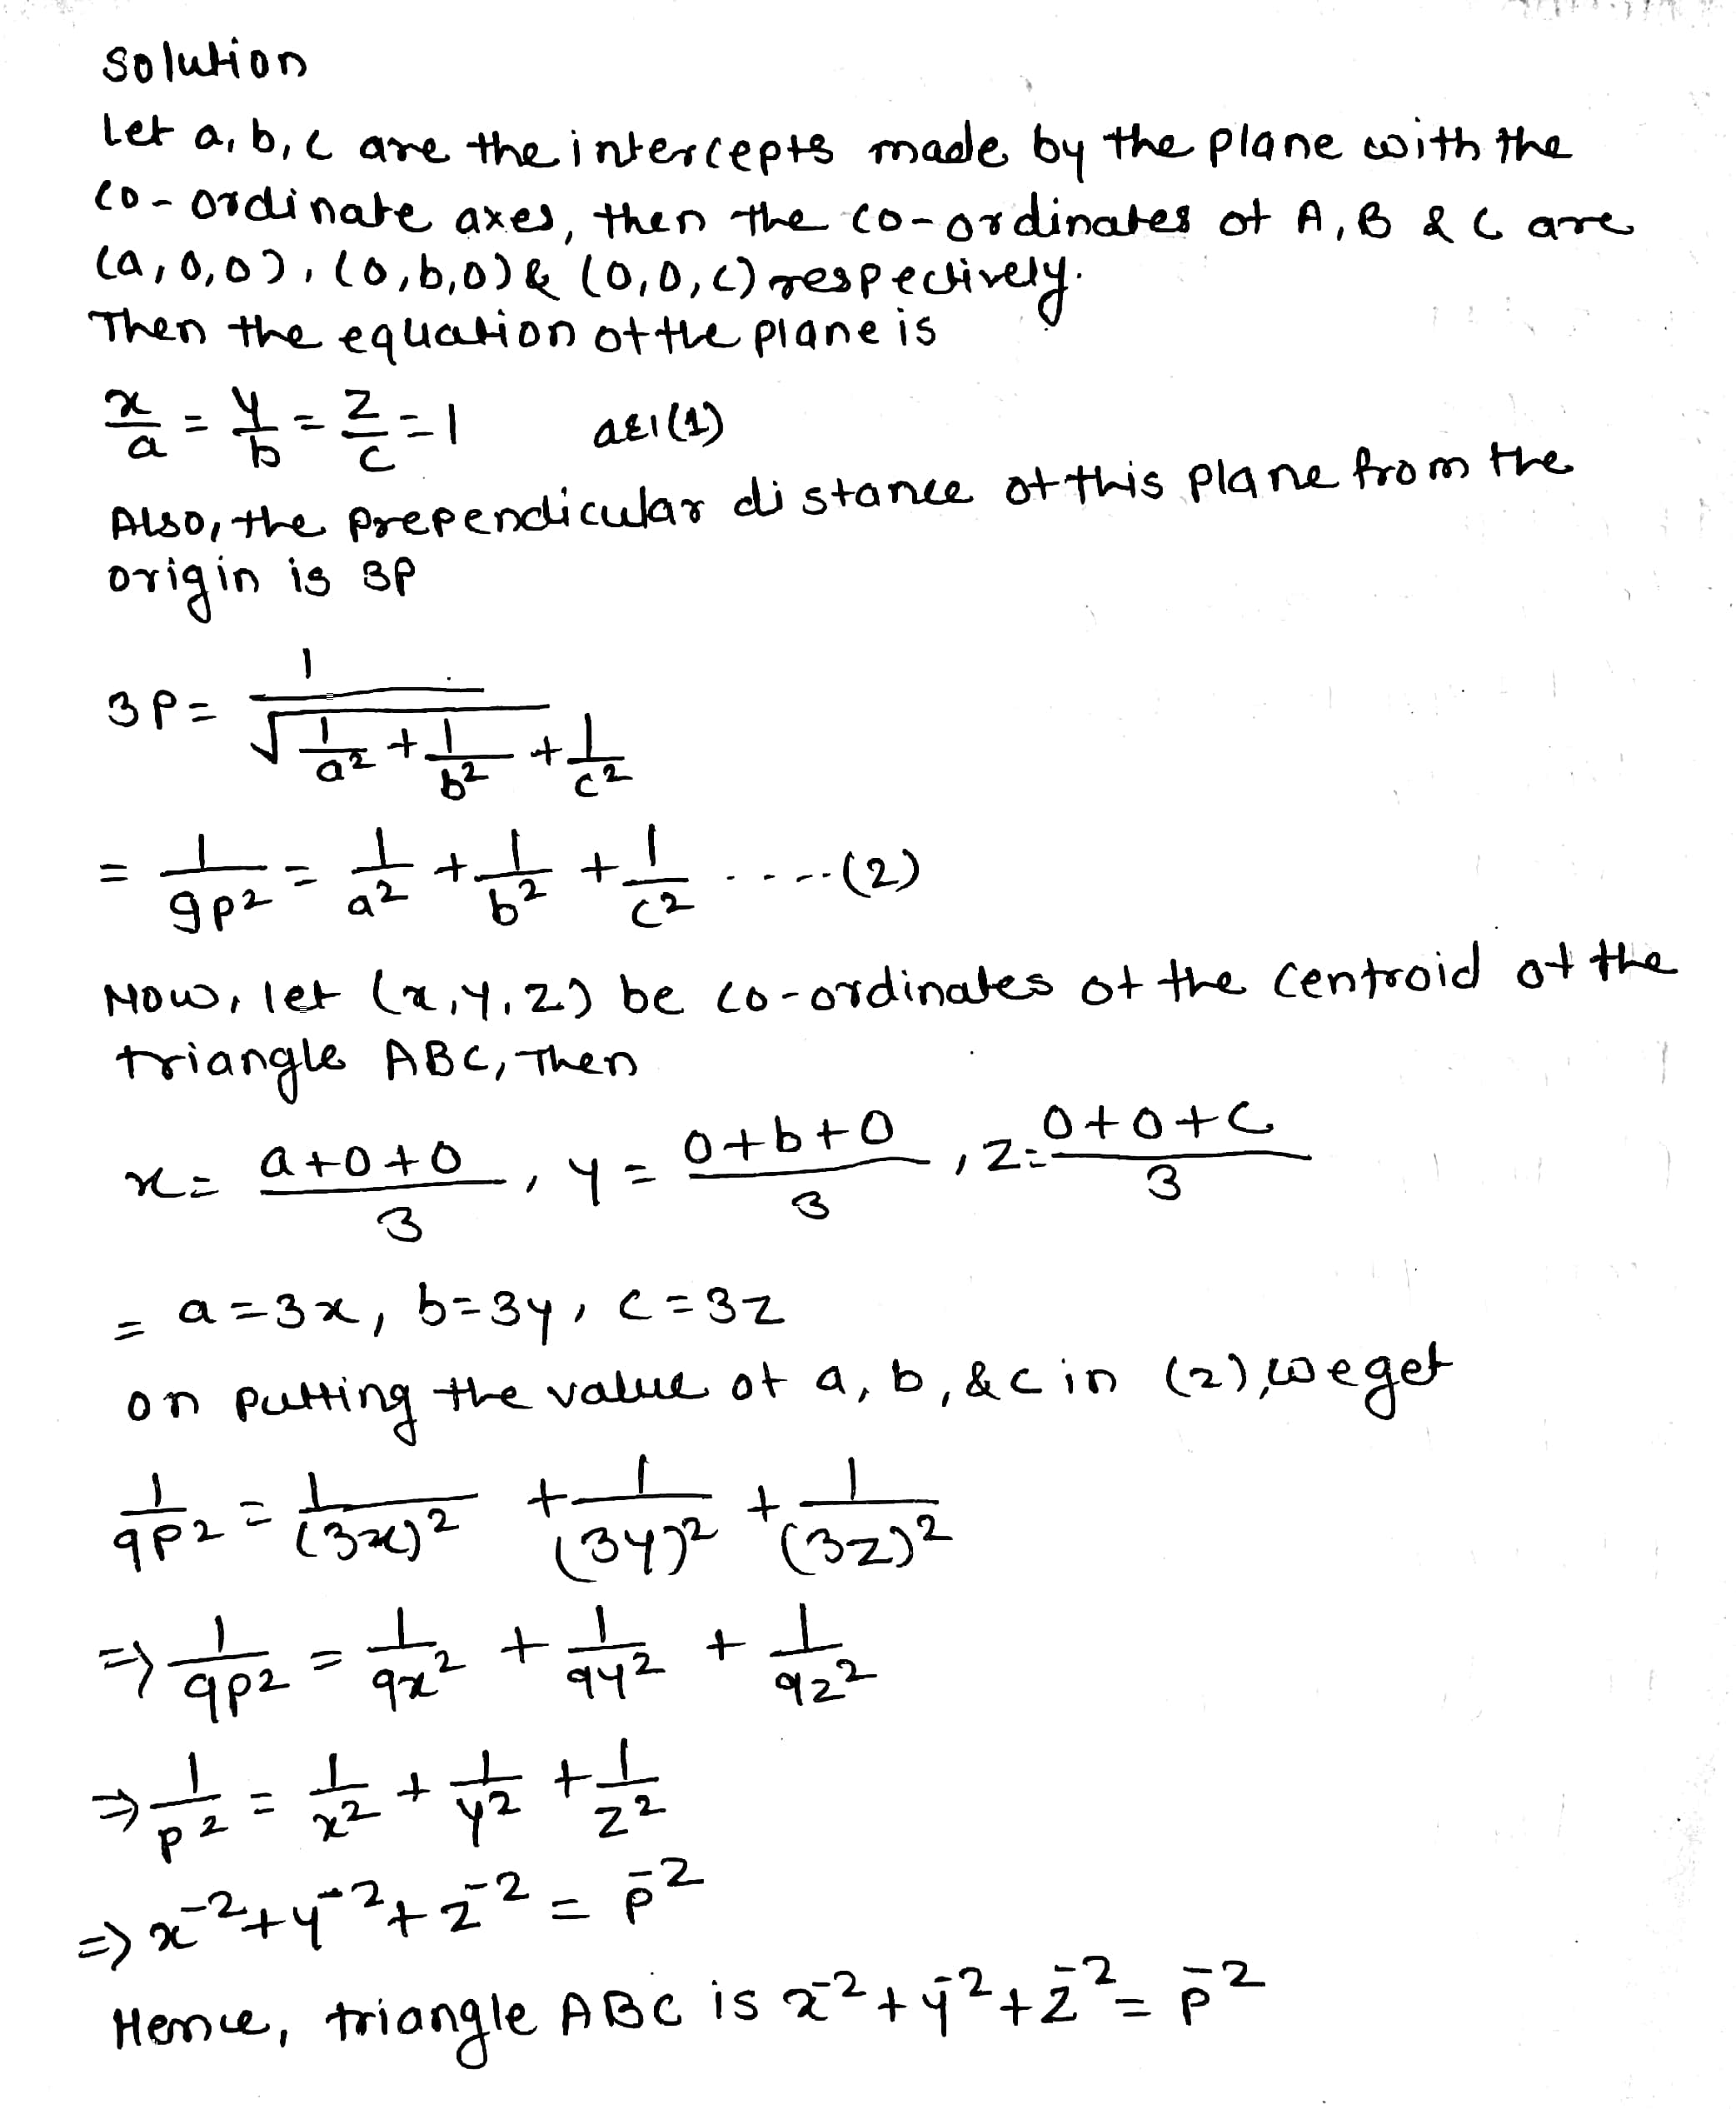 Solution
Let a, b, c are the intercepts made by the plane with the
co-ordinate axes, then the co-ordinates of A, B & C are
(a,0,0), (0,b,0) & (0,0,c) respectively.
Then the equation of the plane is
x/a = y/b = z/c = 1
Also, the prependicular distance of this plane from the
origin is 3P
3P = 1/√(1/a² + 1/b²) + 1/c²
= 1/9p² = 1/a² + 1/b² + 1/c² ....(2)
Now, let (x, y, z) be co-ordinates of the centroid of the
triangle ABC, Then
x = (a+0+0)/3, y = (0+b+0)/3, z = (0+0+c)/3
= a=3x, b=3y, c=3z
on putting the value of a, b, & c in (2), we get
1/9p² = 1/(3x)² + 1/(3y)² + 1/(3z)²
⇒ 1/9p² = 1/9x² + 1/9y² + 1/9z²
⇒ 1/p² = 1/x² + 1/y² + 1/z²
⇒ x⁻² + y⁻² + z⁻² = p⁻²
Hence, triangle ABC is x⁻² + y⁻² + z⁻² = p⁻²